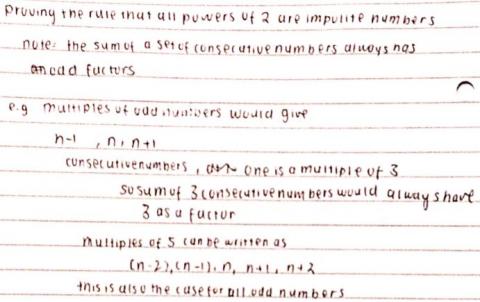 proving the rule that all powers of 2 are impolite numbers
note: the sum of a set of consecutive numbers always has
an odd factors
e.g multiples of odd numbers would give
n-1 , n, n+1
consecutive numbers, one is a multiple of 3
so sum of 3 consecutive numbers would always have
3 as a factor
multiples of 5 can be written as
(n-2), (n-1), n, n+1, n+2
this is also the case for all odd numbers